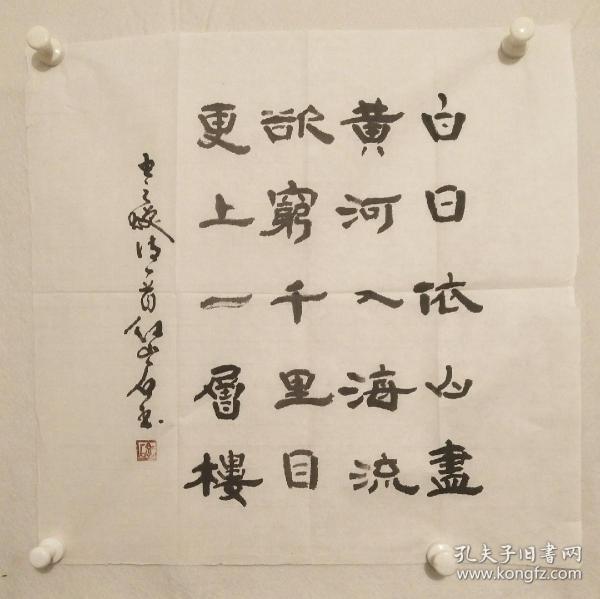 白日依山盡
黄河入海流
欲窮千里目
更上一層樓
孔夫子旧書网
www.kongfz.com